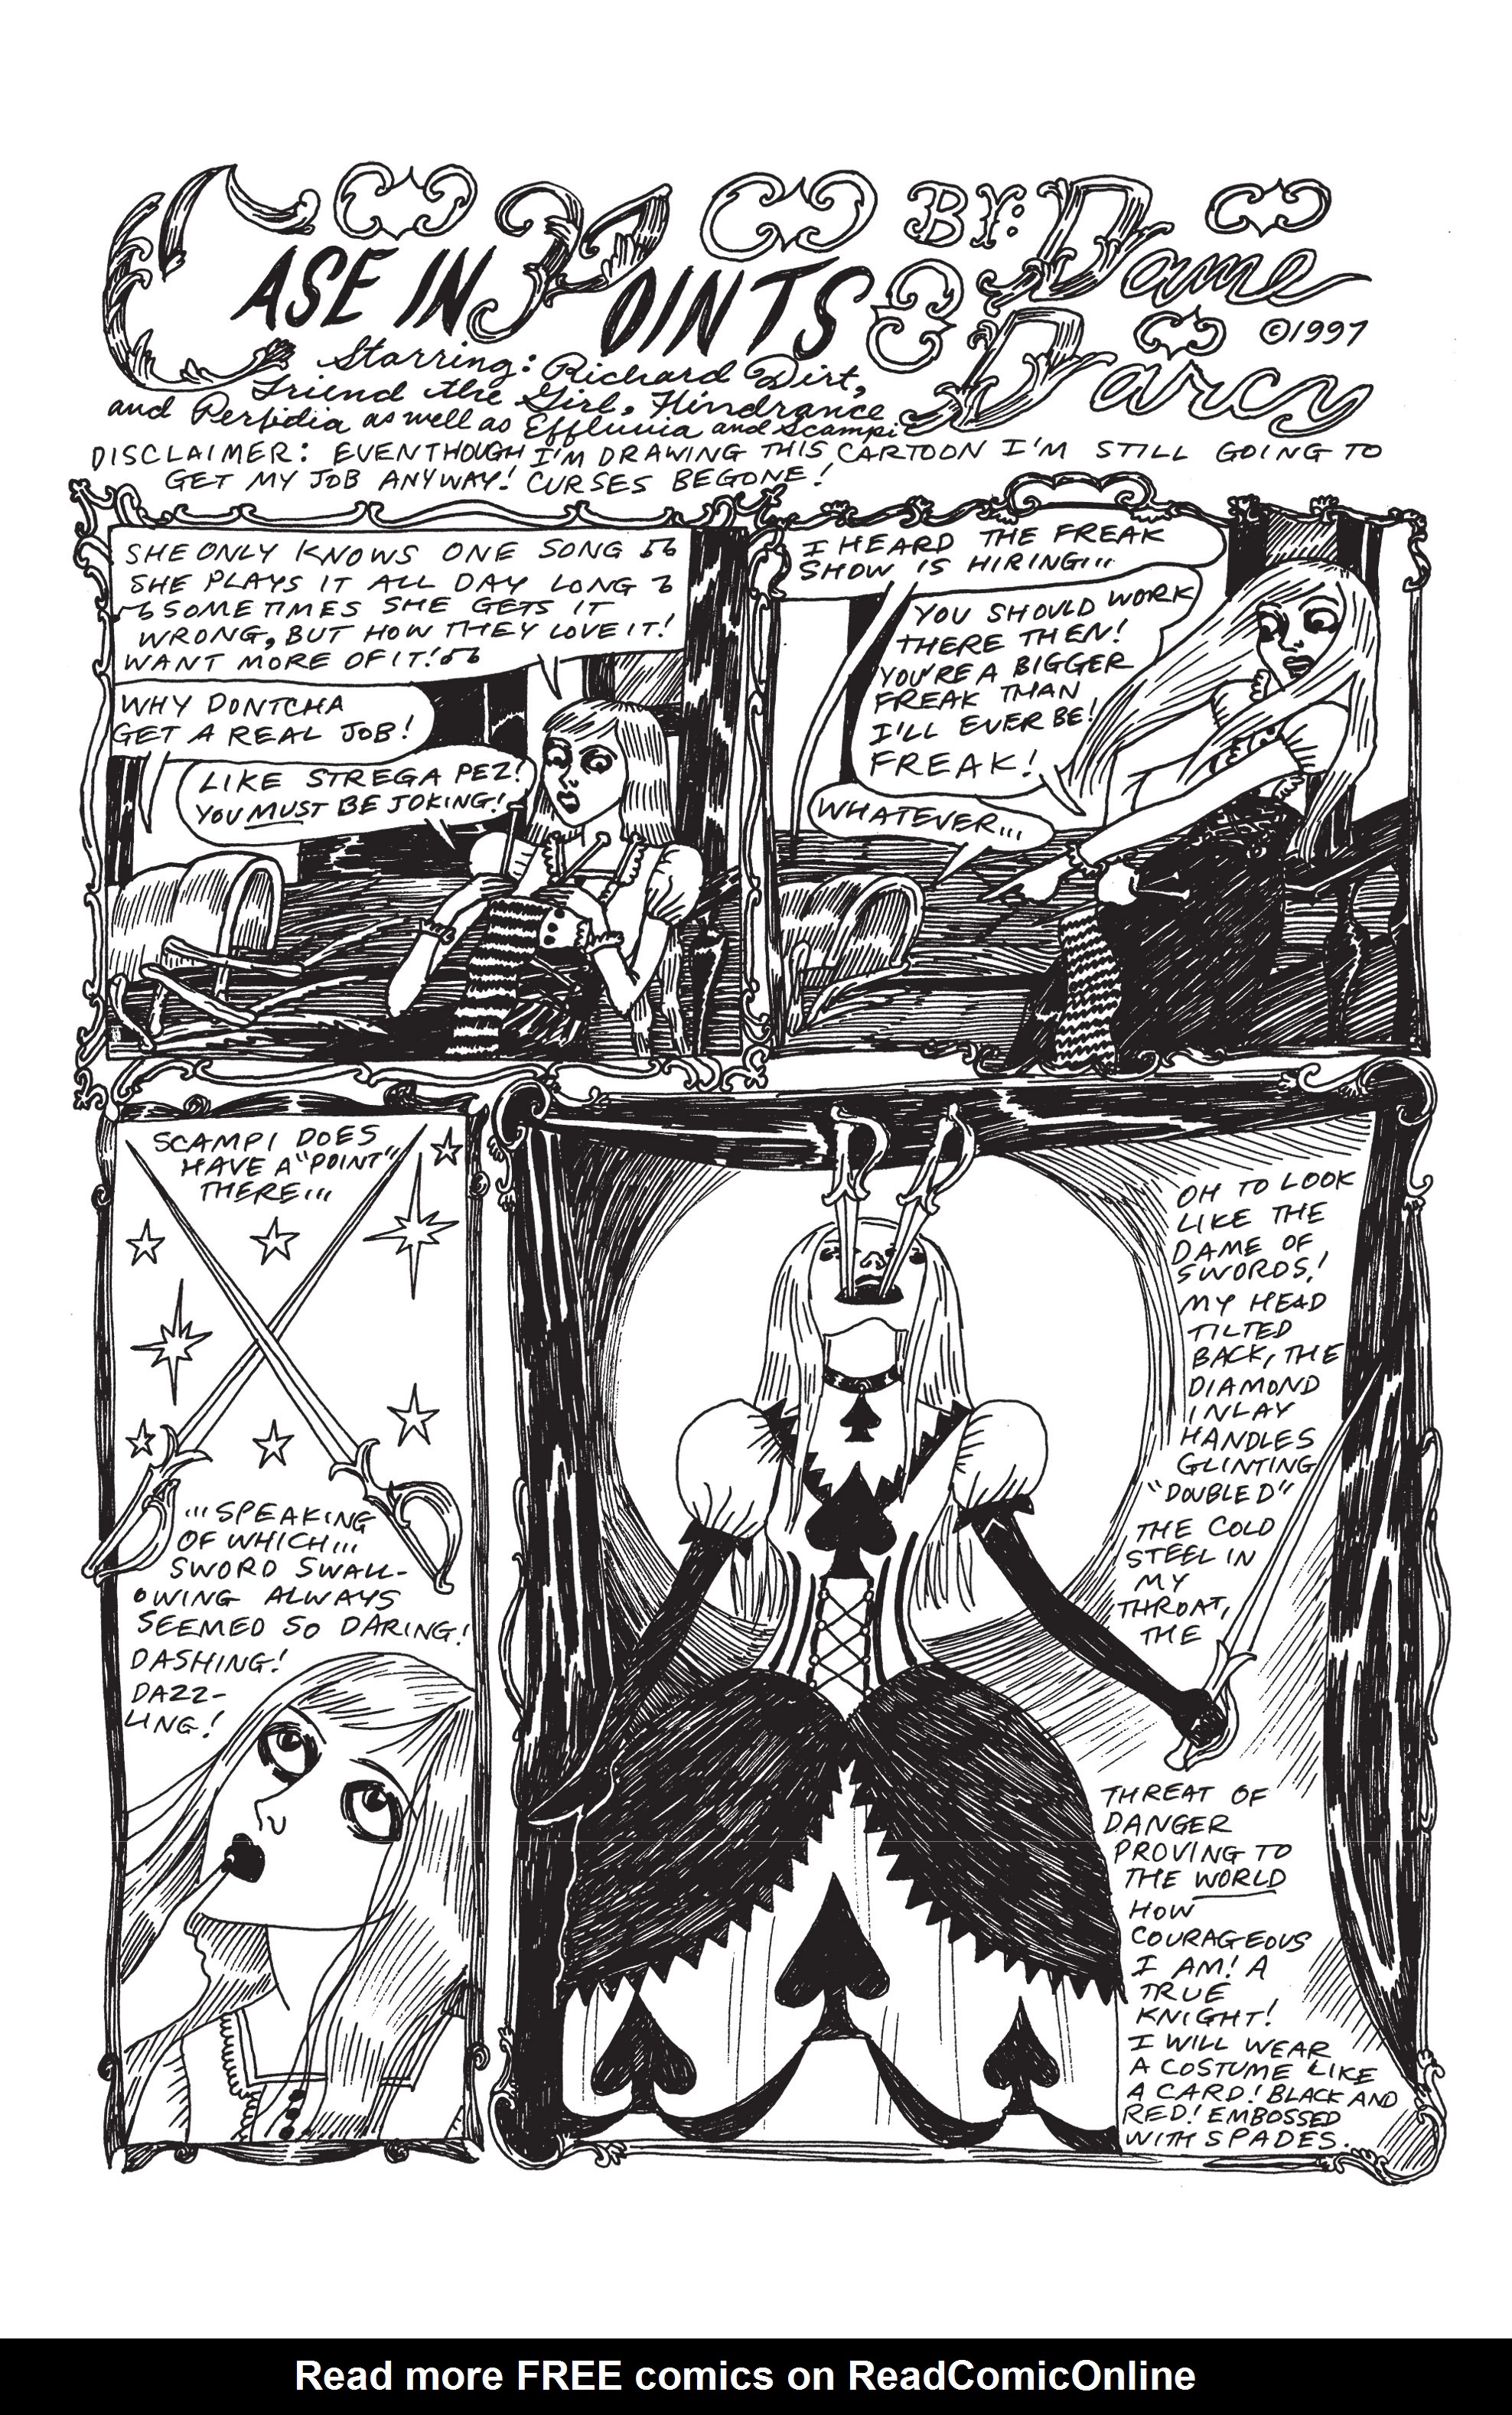 CASE IN POINTS
BY: Dame
Darcy
©1997
Starring: Richard Dirt,
Friend the Girl, Hindrance
and Perfidia as well as Effluvia and Scampi
DISCLAIMER: EVENTHOUGH I'M DRAWING THIS CARTOON I'M STILL GOING TO
GET MY JOB ANYWAY! CURSES BEGONE!
SHE ONLY KNOWS ONE SONG
SHE PLAYS IT ALL DAY LONG
SOMETIMES SHE GETS IT
WRONG, BUT HOW THEY LOVE IT!
WANT MORE OF IT!
WHY DONTCHA
GET A REAL JOB!
LIKE STREGA PEZ!
YOU MUST BE JOKING!
I HEARD THE FREAK
SHOW IS HIRING...
YOU SHOULD WORK
THERE THEN!
YOU'RE A BIGGER
FREAK THAN
I'LL EVER BE!
FREAK!
WHATEVER...
SCAMPI DOES
HAVE A "POINT"
THERE...
...SPEAKING
OF WHICH...
SWORD SWALL-
OWING ALWAYS
SEEMED SO DARING!
DASHING!
DAZZ-
LING!
OH TO LOOK
LIKE THE
DAME OF
SWORDS!
MY HEAD
TILTED
BACK, THE
DIAMOND
INLAY
HANDLES
GLINTING
"DOUBLED"
THE COLD
STEEL IN
MY
THROAT,
THE
THREAT OF
DANGER
PROVING TO
THE WORLD
HOW
COURAGEOUS
I AM! A
TRUE
KNIGHT!
I WILL WEAR
A COSTUME LIKE
A CARD! BLACK AND
RED! EMBOSSED
WITH SPADES.
Read more FREE comics on ReadComicOnline